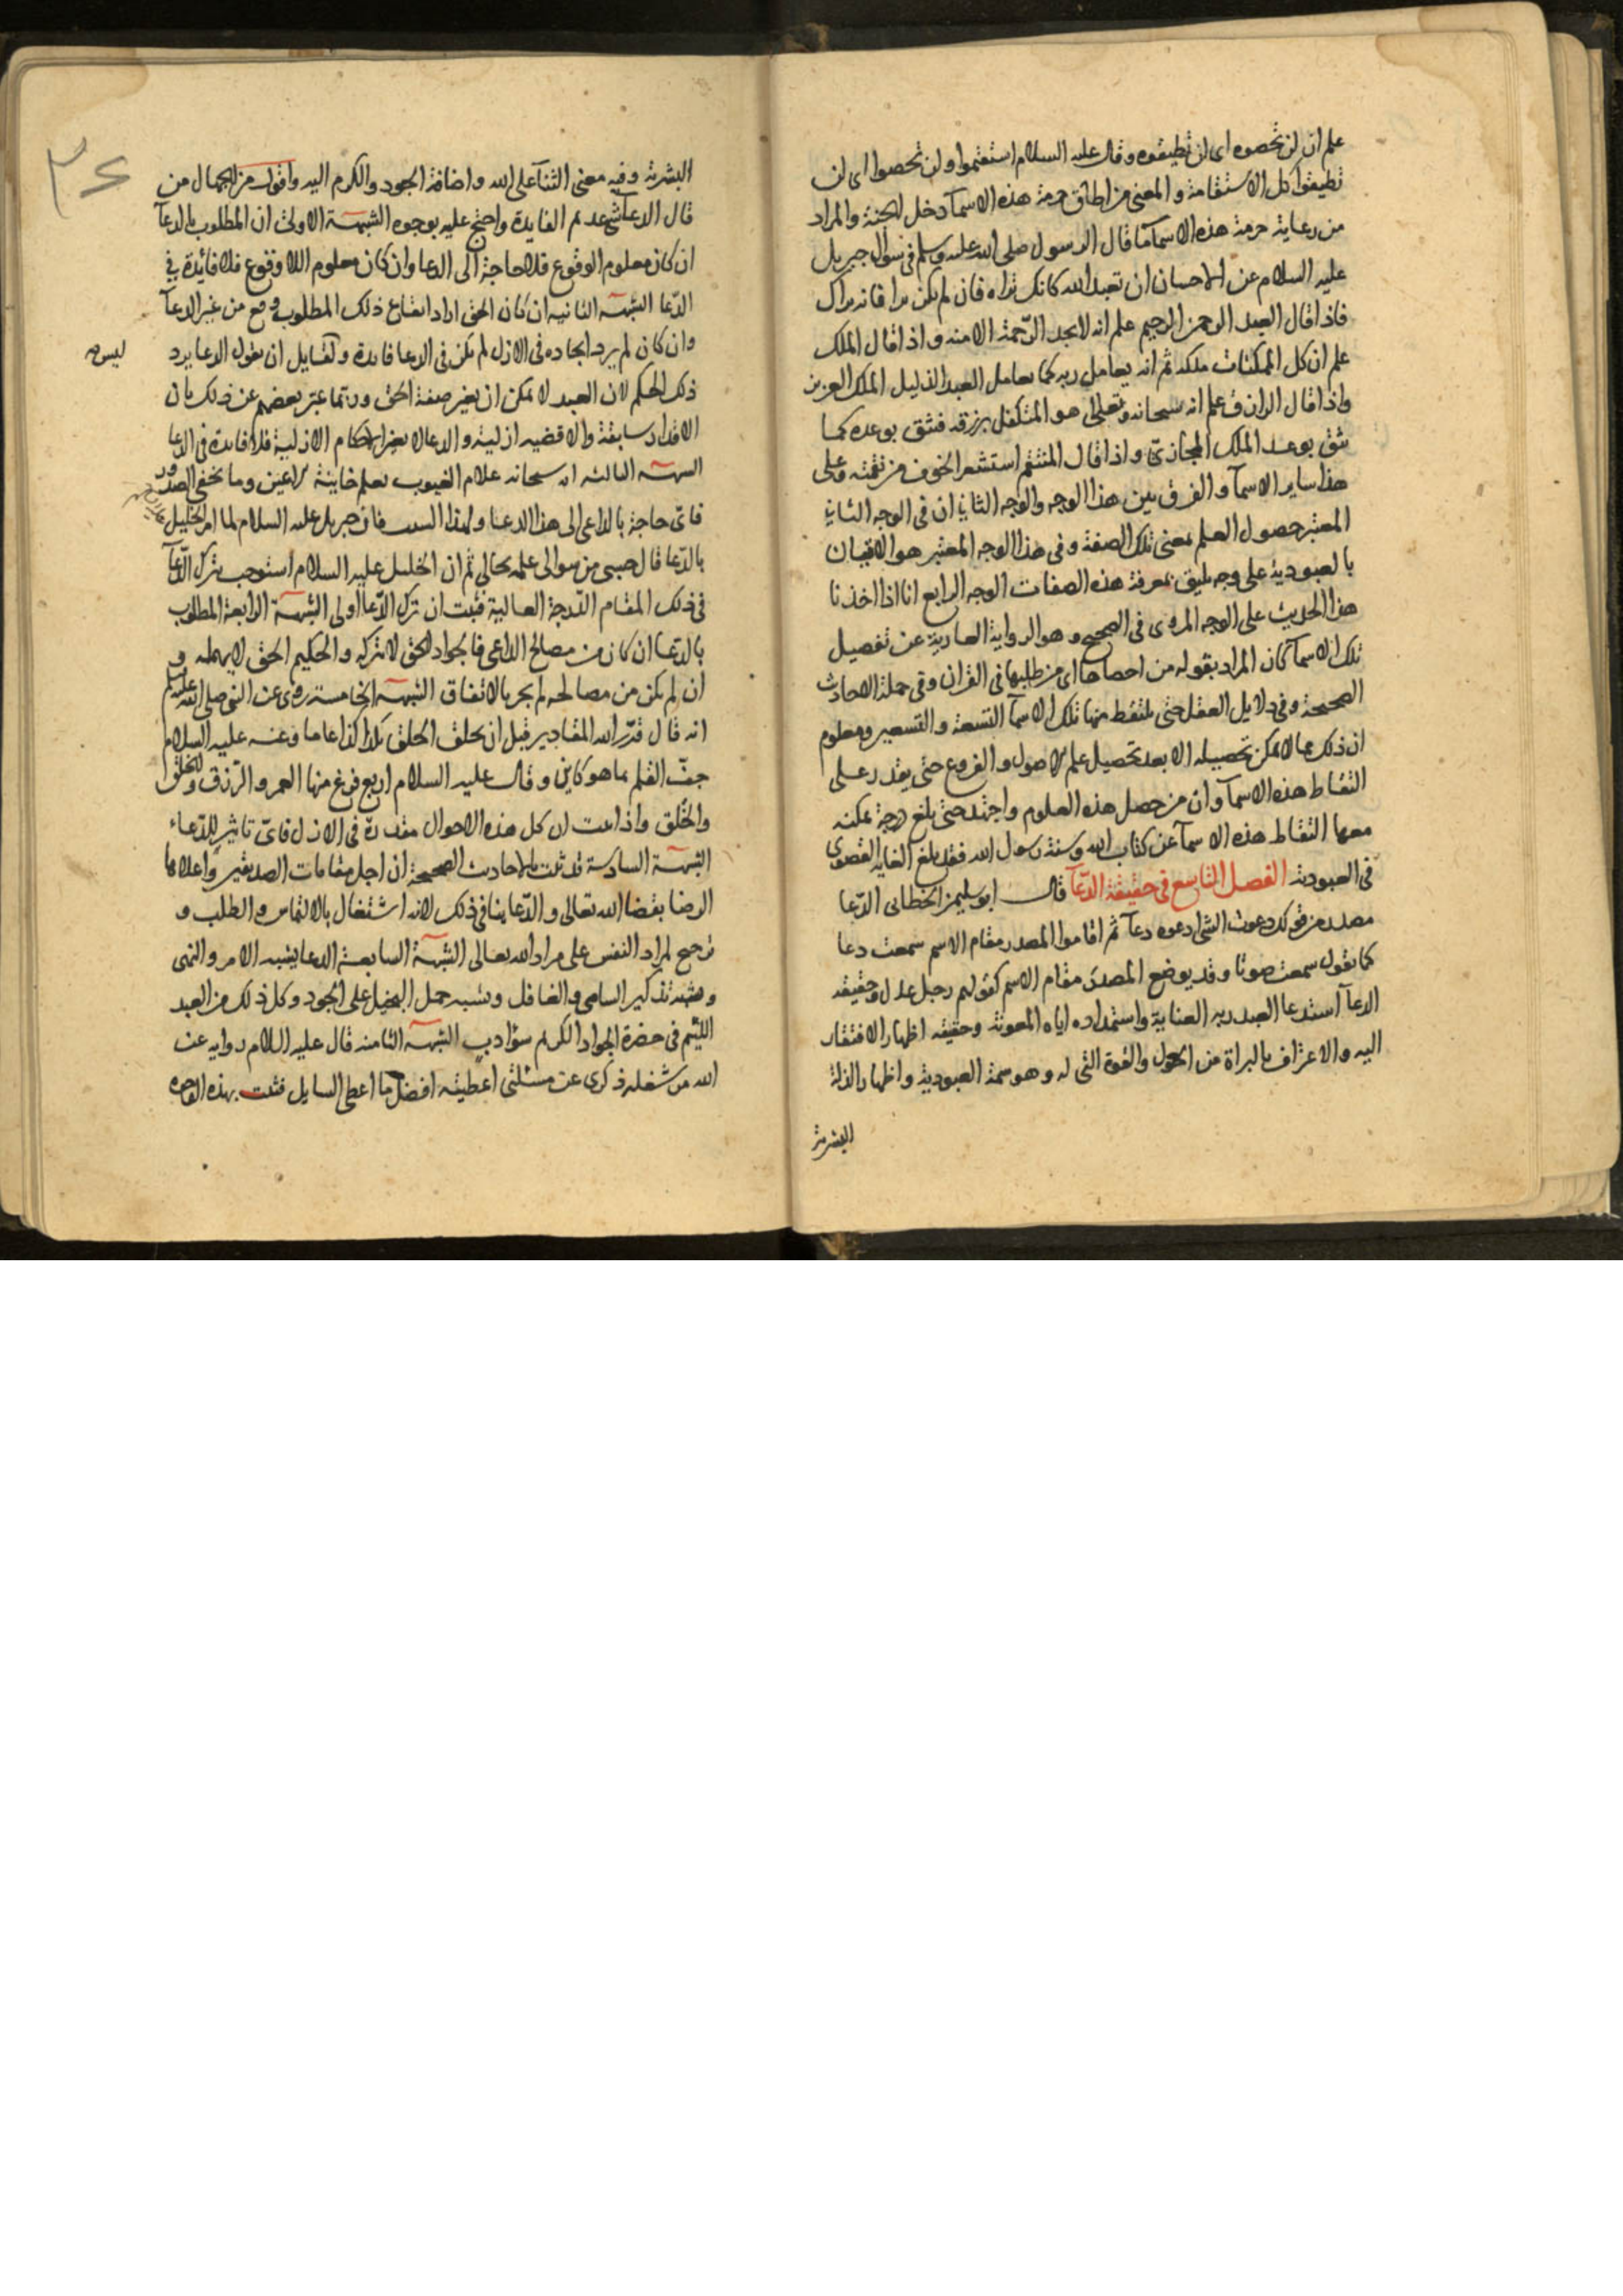 علم ان لن تحصوه اى لن تطيقوه وقال عليه السلام استقيموا ولن تحصوا اى لن
تطيقوا كل الاستقامة والمعنى من اطاق حرمة هذه الاسمآ دخل الجنة والمراد
من رعاية حرمة هذه الاسمآ كما قال الرسول صلى الله عليه وسلم فى سؤال جبريل
عليه السلام عن الاحسان ان تعبد الله كانك تراه فان لم تكن تراه فانه يراك
فاذا قال العبد الرحمن الرحيم علم انه لا يجد الرحمة الا منه واذا قال الملك
علم ان كل الممكنات ملكه ثم انه يعامل ربه كما يعامل العبد الذليل الملك العزيز
واذا قال الرازق علم انه سبحانه وتعالى هو المتكفل برزقه فيثق بوعده كما
يثق بوعد الملك المجازىّ واذا قال المنتقم استشعر الخوف من نقمته وعلى
هذا ساير الاسمآ والفرق بين هذا الوجه والوجه الثانى ان فى الوجه الثانى
المعتبر حصول العلم بمعنى تلك الصفة وفى هذا الوجه المعتبر هو الاتيان
بالعبودية على وجه يليق بمعرفة هذه الصفات الوجه الرابع انا اذا اخذنا
هذا الحديث على الوجه المروى فى الصحيح وهو الرواية العارية عن تفصيل
تلك الاسمآ كان المراد بقوله من احصاها اى من طلبها فى القران وفى جملة الاحاديث
الصحيحة وفى دلايل العقل حتى يلتقط منها تلك الاسمآ التسعة والتسعين ومعلوم
ان ذلك مما لا يمكن تحصيله الا بعد تحصيل علم الاصول والفروع حتى يقدر على
التقاط هذه الاسمآ وان من حصل هذه العلوم واجتهد حتى بلغ درجة يمكنه
معها التقاط هذه الاسمآ عن كتاب الله وسنة رسول الله فقد بلغ الغاية القصوى
فى العبودية الفصل التاسع فى حقيقة الدّعآ قال ابو سليمن الخطابى الدّعا
مصدر من قولك دعوت الشئ ادعوه دعآ ثم اقاموا المصدر مقام الاسم سمعت دعا
كما تقول سمعت صوتا وقد يوضع المصدر مقام الاسم كقولهم رجل عدل وحقيقة
الدعآ استدعا العبد ربه العناية واستمداده اياه المعونة وحقيقته اظهار الافتقار
اليه والاعتراف بالبراة من الحول والقوة التى له وهو سمة العبودية واظهار الذلة
البشرية
٣٤
البشرية وفيه معنى الثنآ على الله واضافة الجود والكرم اليه واقول من الجهال من
قال الدعآ شئ عديم الفايدة واحتج عليه بوجوه الشبهة الاولى ان المطلوب بالدعآ
ان كان معلوم الوقوع فلا حاجة الى الدعا وان كان معلوم اللا وقوع فلا فائدة فى
الدّعا الشبهة الثانية ان كان الحق اراد ايقاع ذلك المطلوب وقع من غير الدعآ
وان كان لم يرد ايجاده فى الازل لم يكن فى الدعا فايدة ولقايل ان يقول الدعا يرد
ليس
ذلك الحكم لان العبد لا يمكن ان يغير صفة الحق وربما عبّر بعضهم عن ذلك بان
الاقدار سابقة والاقضيه ازلية والدعا لا يغير الاحكام الازلية فلا فايدة فى الدعا
الشبهة الثالثة انه سبحانه علام الغيوب يعلم خاينة الاعين وما تخفى الصدور
فاىّ حاجة بالداعى الى هذا الدعا ولهذا السبب فان جبريل عليه السلام لما امر الخليل
بالدّعا قال حسبى من سوالى علمه بحالى ثم ان الخليل عليه السلام استوجب بترك الدّعآ
فى ذلك المقام الدّرجة العالية فثبت ان ترك الدّعآ اولى الشبهة الرابعة المطلوب
بالدّعا ان كان من مصالح الداعى فالجواد الحق لا يتركه والحكيم الحق لا يهمله و
ان لم يكن من مصالحه لم يجز بالاتفاق الشبهة الخامسة روى عن النبى صلى الله عليه وسلم
انه قال قدّر الله المقادير قبل ان يخلق الخلق بكذا كذا عاما وعنه عليه السلام
جفّ القلم بما هو كاين وقال عليه السلام اربع فرغ منها العمر والرّزق والخلق
والخُلق واذا ثبت ان كل هذه الاحوال مقدرة فى الازل فاىّ تاثير للدّعاء
الشبهة السادسة قد ثبت بالاحاديث الصحيحة ان اجل مقامات الصديقين واعلاها
الرضا بقضا الله تعالى والدّعا ينافى ذلك لانه اشتغال بالالتماس والطلب و
ترجيح لمراد النفس على مراد الله تعالى الشبهة السابعة الدعا يشبه الامر والنهى
ويشبه تذكير الساهى والغافل ويشبه حمل البخيل على الجود وكل ذلك من العبد
اللئيم فى حضرة الجواد الكريم سوء ادب الشبهة الثامنة قال عليه السلام رواية عن
الله من شغله ذكرى عن مسئلتى اعطيته افضل ما اعطى السايل فثبت بهذه الوجوه